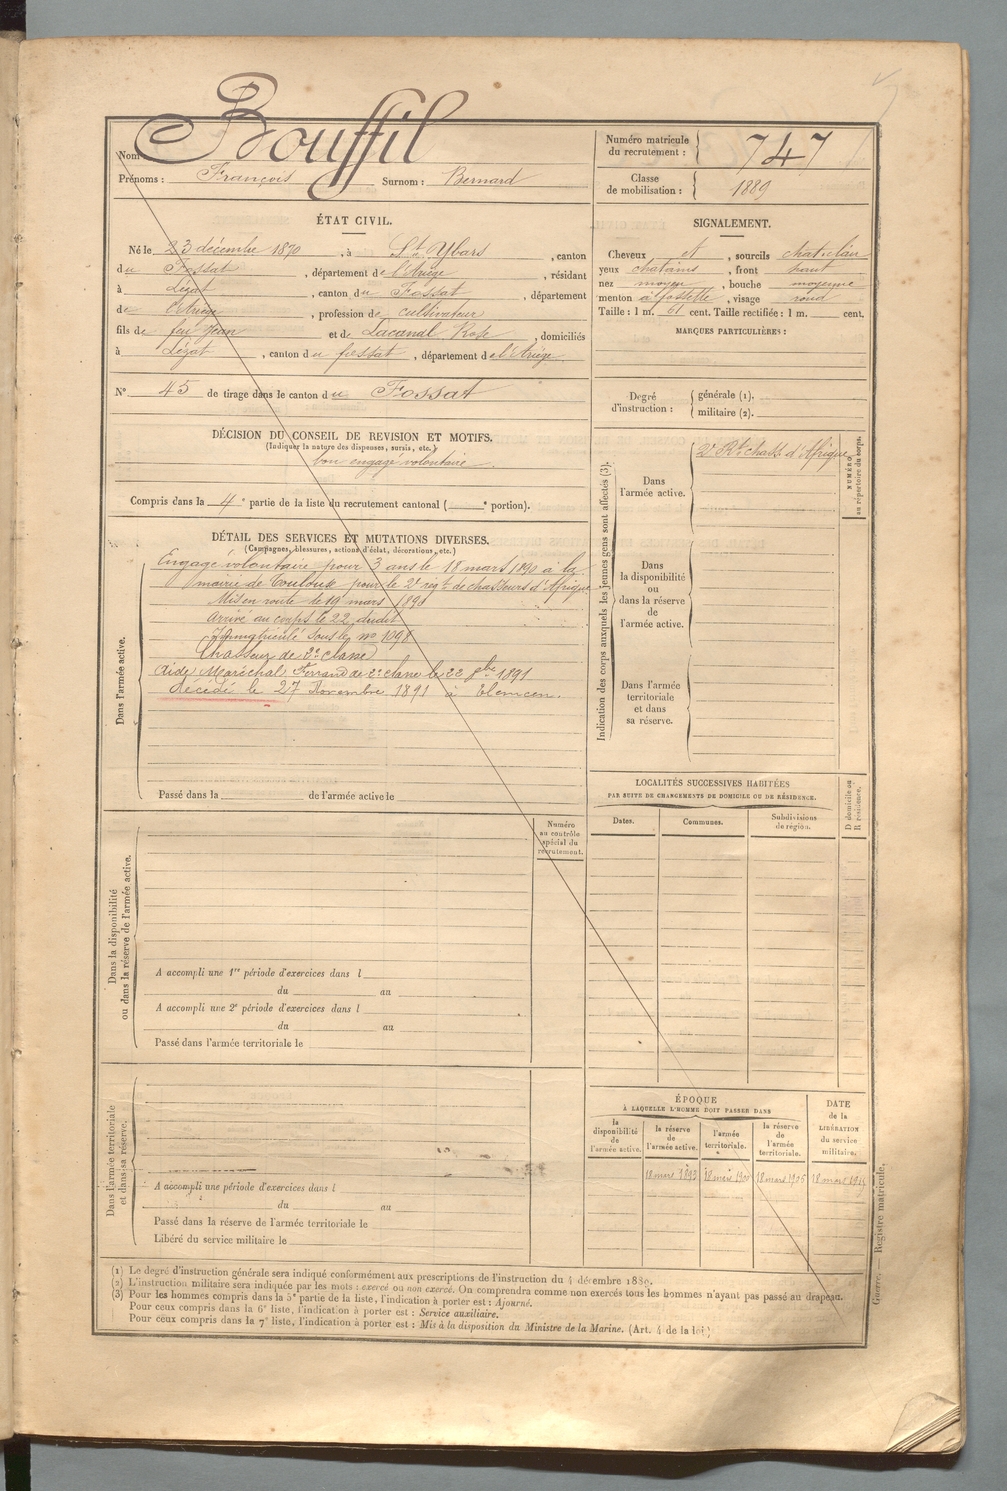 Nom Bouffil
Prénoms : François Surnom : Bernard
Numéro matricule du recrutement : 747
Classe de mobilisation : 1889
ÉTAT CIVIL.
Né le 23 décembre 1870, à St Ybars, canton
du Fossat, département de l'Ariège, résidant
à Lézat, canton du Fossat, département
de l'Ariège, profession de cultivateur
fils de feu Jean et de Lacanal Rose, domiciliés
à Lézat, canton du fossat, département de l'Ariège.
SIGNALEMENT.
Cheveux et, sourcils chat. clair
yeux chatains, front haut
nez moyen, bouche moyenne
menton à fossette, visage rond
Taille : 1 m. 61 cent. Taille rectifiée : 1 m. cent.
MARQUES PARTICULIÈRES :
N° 45 de tirage dans le canton du Fossat
Degré d'instruction : générale (1).
militaire (2).
DÉCISION DU CONSEIL DE REVISION ET MOTIFS.
(Indiquer la nature des dispenses, sursis, etc.)
bon engagé volontaire.
Compris dans la 4e partie de la liste du recrutement cantonal ( e portion).
DÉTAIL DES SERVICES ET MUTATIONS DIVERSES.
(Campagnes, blessures, actions d'éclat, décorations, etc.)
Dans l'armée active.
Engagé volontaire pour 3 ans le 18 mars 1890 à la
mairie de Toulouse pour le 2e régt de chasseurs d'Afrique
Mis en route le 19 mars 1890
arrivé au corps le 22 dudit
Immatriculé sous le no 1098
Chasseur de 2e classe
Aide Maréchal Ferrand de 2e classe le 22 8bre 1891
décédé le 27 Novembre 1891 à Tlemcen.
Passé dans la de l'armée active le
Indication des corps auxquels les jeunes gens sont affectés (3).
Dans l'armée active.
2e Rt chass. d'Afrique
NUMÉRO au répertoire du corps.
Dans la disponibilité ou dans la réserve de l'armée active.
Dans l'armée territoriale et dans sa réserve.
LOCALITÉS SUCCESSIVES HABITÉES
PAR SUITE DE CHANGEMENTS DE DOMICILE OU DE RÉSIDENCE.
Dates. Communes. Subdivisions de région. D domicile ou R résidence.
Dans la disponibilité ou dans la réserve de l'armée active.
Numéro au contrôle spécial du recrutement.
A accompli une 1re période d'exercices dans l
du au
A accompli une 2e période d'exercices dans l
du au
Passé dans l'armée territoriale le
Dans l'armée territoriale et dans sa réserve.
A accompli une période d'exercices dans l
du au
Passé dans la réserve de l'armée territoriale le
Libéré du service militaire le
ÉPOQUE
À LAQUELLE L'HOMME DOIT PASSER DANS
la disponibilité de l'armée active. la réserve de l'armée active. l'armée territoriale. la réserve de l'armée territoriale. DATE de la LIBÉRATION du service militaire.
18 mars 1893 18 mars 1900 18 mars 1906 18 mars 1915
(1) Le degré d'instruction générale sera indiqué conformément aux prescriptions de l'instruction du 4 décembre 1889.
(2) L'instruction militaire sera indiquée par les mots : exercé ou non exercé. On comprendra comme non exercés tous les hommes n'ayant pas passé au drapeau.
(3) Pour les hommes compris dans la 5e partie de la liste, l'indication à porter est : Ajourné.
Pour ceux compris dans la 6e liste, l'indication à porter est : Service auxiliaire.
Pour ceux compris dans la 7e liste, l'indication à porter est : Mis à la disposition du Ministre de la Marine. (Art. 4 de la loi)
Guerre. — Registre matricule.